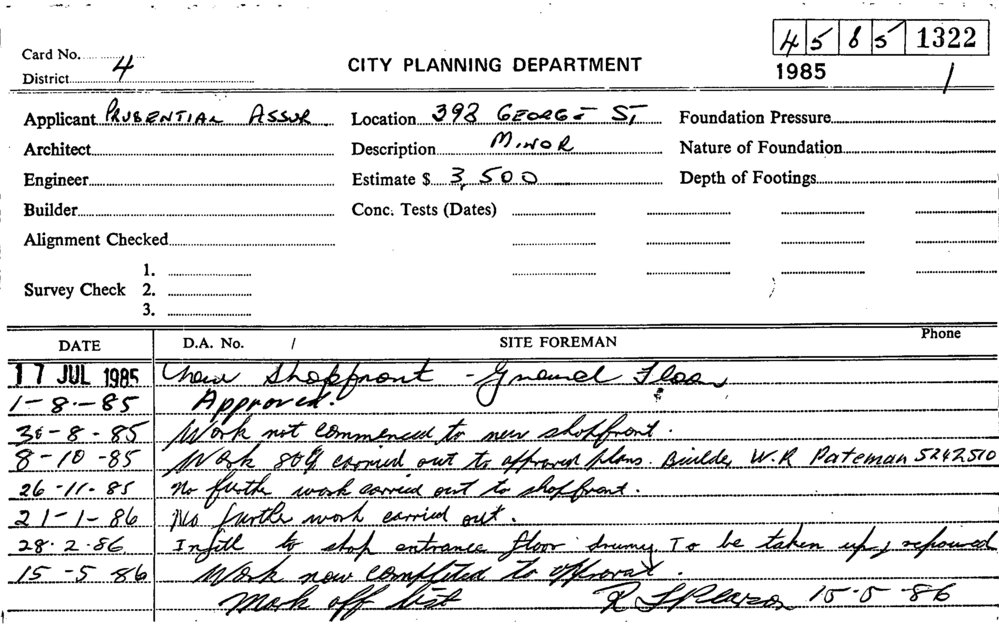 45 85 1322
Card No. 4
CITY PLANNING DEPARTMENT
1985 1
District
Applicant PRUDENTIAL ASSUR Location 393 GEORGE ST, Foundation Pressure
Architect Description MINOR Nature of Foundation
Engineer Estimate $ 3,500 Depth of Footings
Builder Conc. Tests (Dates)
Alignment Checked
1.
Survey Check 2.
3.
DATE D.A. No. / SITE FOREMAN Phone
17 JUL 1985 New Shopfront - Ground Floor
1-8-85 Approved.
30-8-85 Work not commenced to new shopfront.
8-10-85 Work 80% carried out to approved plans. Builder W.R Pateman 5242510
26-11-85 No further work carried out to shopfront.
21-1-86 No further work carried out.
28.2.86 Infill to shop entrance floor drumy To be taken up & repoured
15-5 86 Work now completed to approval.
Mark off list R Pearson 15-5-86